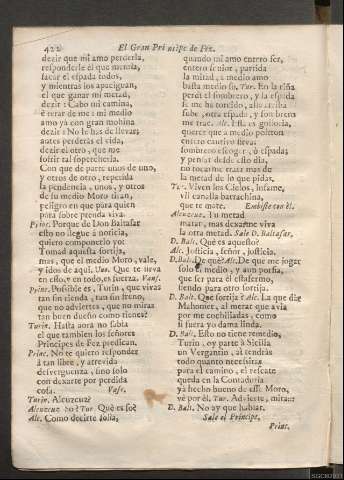 422 El Gran Principe de Fez.
dezir que mi amo perderla,
responderle él que mentia,
sacar el espada todos,
y mientras los apaciguan,
el que ganar mi metad,
dezir: Cabo mi camina,
è tirar de me: mi medio
amo ya con gran mohina
dezir: No le has de llevar;
antes perderàs el vida,
dezir el otro, que
sofrir tal sopercheria.
Con que de parte unos de uno,
y otros de otro, reperida
la pendencia, unos, y otros
de su medio Moro tiran,
peligro en que para quien
para sobre prenda viva.
Princ. Porque de Don Baltasar
esto no llegue à noticia,
quiero componerlo yo:
Tomad aquesta sortija,
mas, que el medio Moro, vale,
y idos de aqui. Uno. Que te sirva
en esto, en todo, es fuerza. Vanse.
Princ. Possible es, Turin, que vivas
tan sin rienda, tan sin freno,
que no adviertas, que no miras
tan buen dueño como tienes?
Turin. Hasta aora no sabia
el que tambien los señores
Principes de Fez predican.
Princ. No te quiero responder
à tan libre, y atrevida
desverguença, sino solo
con dexarte por perdida
cosa. Vase.
Turin. Alcuzcuz?
Alcuzcuz. Tur. Què es so?
Alc. Como decirte solia,
quando mi amo entero ser,
entero servior, partida
la mitad, à medio amo
basta medio si. Tur. En la riña
perdi el sombrero, y la espada
se me ha torcido, alto arriba
sube, otra espada, y sombrero
me trae. Alc. Esta es golloria,
querer que à medio poltron
entero cautivo sirva:
sombrero escoger, ò espada;
y pensar desde esto dia,
no tocarme tratar mas de
la metad de lo que pidas.
Tur. Viven los Cielos, infame,
vil canalla barrachina,
que te mate. Embiste con èl.
Alcuzcuz. Tu metad
matar, mas dexarme viva
la otra metad. Sale D. Baltasar.
D. Balt. Què es aquesto?
Alc. Justicia, señor, justicia.
D. Balt. De què? Alc. De que me jogar
solo el medio, y aun porfia,
que ser para el estafermo,
siendo para otro sortija.
D. Balt. Què sortija? Alc. La que dàr
Mahomet, al merar que avia
por me cochilladas, como
si fuera yo dama linda.
D. Balt. Esto no tiene remedio,
Turin, oy parte à Sicilia
un Vergantin, al tendràs
todo quanto necessitas
para el camino, el rescate
queda en la Contaduria
ya hecho bueno de esse Moro,
vè por èl. Tur. Advierte, mira:::
D. Balt. No ay que hablar.
Sale el Principe.
Princ.